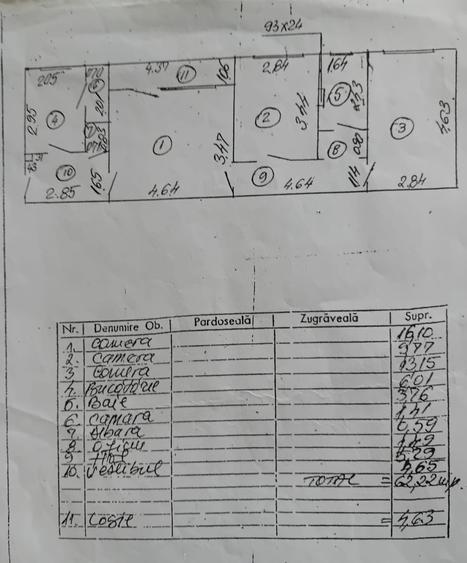 93x24
205
070
4.37
11
106
2.84
1.64
6
201
2.95
4
7
1
3.47
2
3.44
5
8
080
3
4,63
10
2.85
165
4.64
9
4.64
114
2.84
Nr. Denumire Ob. Pardoseală Zugrăveală Supr.
1. Camera 16,10
2. Camera 9,77
3 Camera 13,15
4. Bucătărie 6,01
5. Baie 3,76
6. Camara 1,41
7. 0,59
8. 1,49
9. 5,29
10. Vestibul 4,65
TOTAL = 62,22 m.p.
11. Logie = 4,63